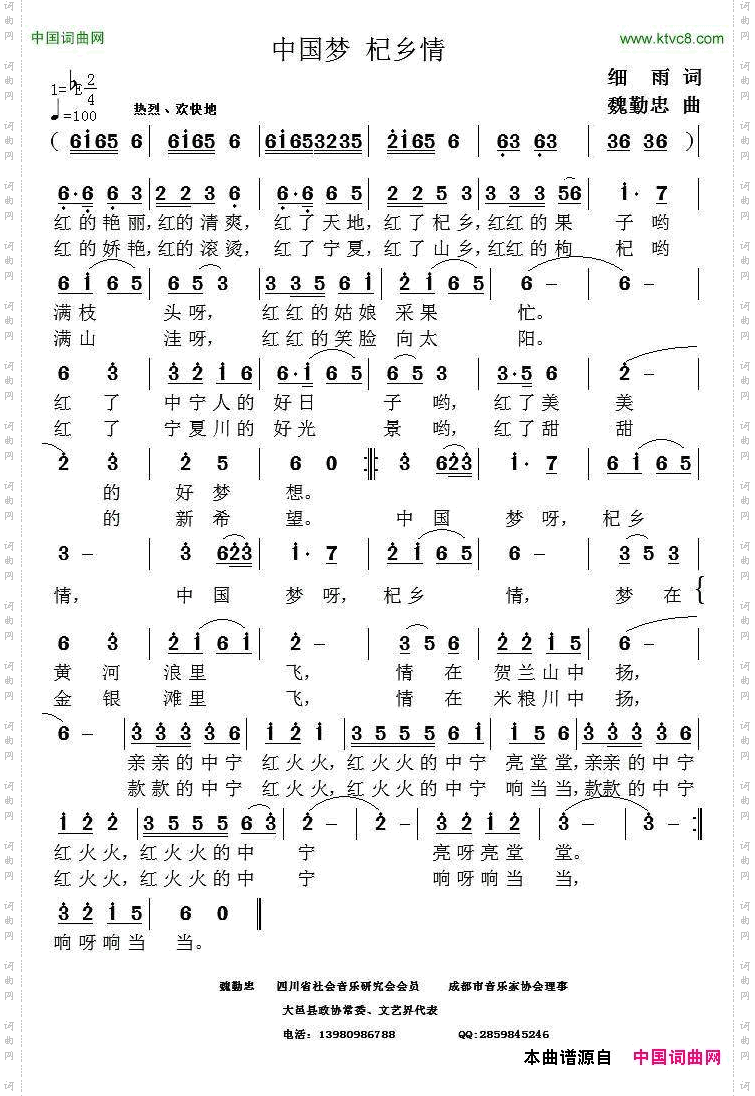 中国词曲网
www.ktvc8.com
中国梦 杞乡情
1=♭E 2/4
♩=100 热烈、欢快地
细 雨 词
魏勤忠 曲
( 6i65 6 | 6i65 6 | 6i653235 | 2i65 6 | 63 63 | 36 36 )
6·6 6 3 | 2 2 3 6 | 6·6 6 5 | 2 2 5 3 | 3 3 3 56 | i· 7
红的艳丽,红的清爽, 红了天地,红了杞乡,红红的果 子哟
红的娇艳,红的滚烫, 红了宁夏,红了山乡,红红的枸 杞哟
6 i 6 5 | 6 5 3 | 3 3 5 6 i | 2 i 6 5 | 6 - | 6 -
满枝 头呀, 红红的姑娘 采果 忙。
满山 洼呀, 红红的笑脸 向太 阳。
6 3 | 3 2 i 6 | 6·i 6 5 | 6 5 3 | 3·5 6 | 2 -
红了 中宁人的好日 子哟, 红了美 美
红了 宁夏川的好光 景哟, 红了甜 甜
2 3 | 2 5 | 6 0 :‖: 3 623 | i· 7 | 6 i 6 5
的 好梦 想。
的 新希 望。 中 国 梦呀, 杞乡
3 - | 3 623 | i· 7 | 2 i 6 5 | 6 - | 3 5 3
情, 中 国 梦呀, 杞乡 情, 梦在{
6 3 | 2 i 6 i | 2 - | 3 5 6 | 2 2 i 5 | 6 -
黄河 浪里 飞, 情在 贺兰山中 扬,
金银 滩里 飞, 情在 米粮川中 扬,
6 - | 3 3 3 3 6 | i 2 i | 3 5 5 5 6 i | i 5 6 | 3 3 3 3 6
亲亲的中宁 红火火,红火火的中宁 亮堂堂,亲亲的中宁
款款的中宁 红火火,红火火的中宁 响当当,款款的中宁
i 2 2 | 3 5 5 5 6 3 | 2 - | 2 - | 3 3 i 2 | 3 - | 3 - :‖
红火火,红火火的中 宁 亮呀亮堂 堂。
红火火,红火火的中 宁 响呀响当 当,
3 2 i 5 | 6 0 ‖
响呀响当 当。
魏勤忠 四川省社会音乐研究会会员 成都市音乐家协会理事
大邑县政协常委、文艺界代表
电话:13980986788 QQ:2859845246
本曲谱源自 中国词曲网